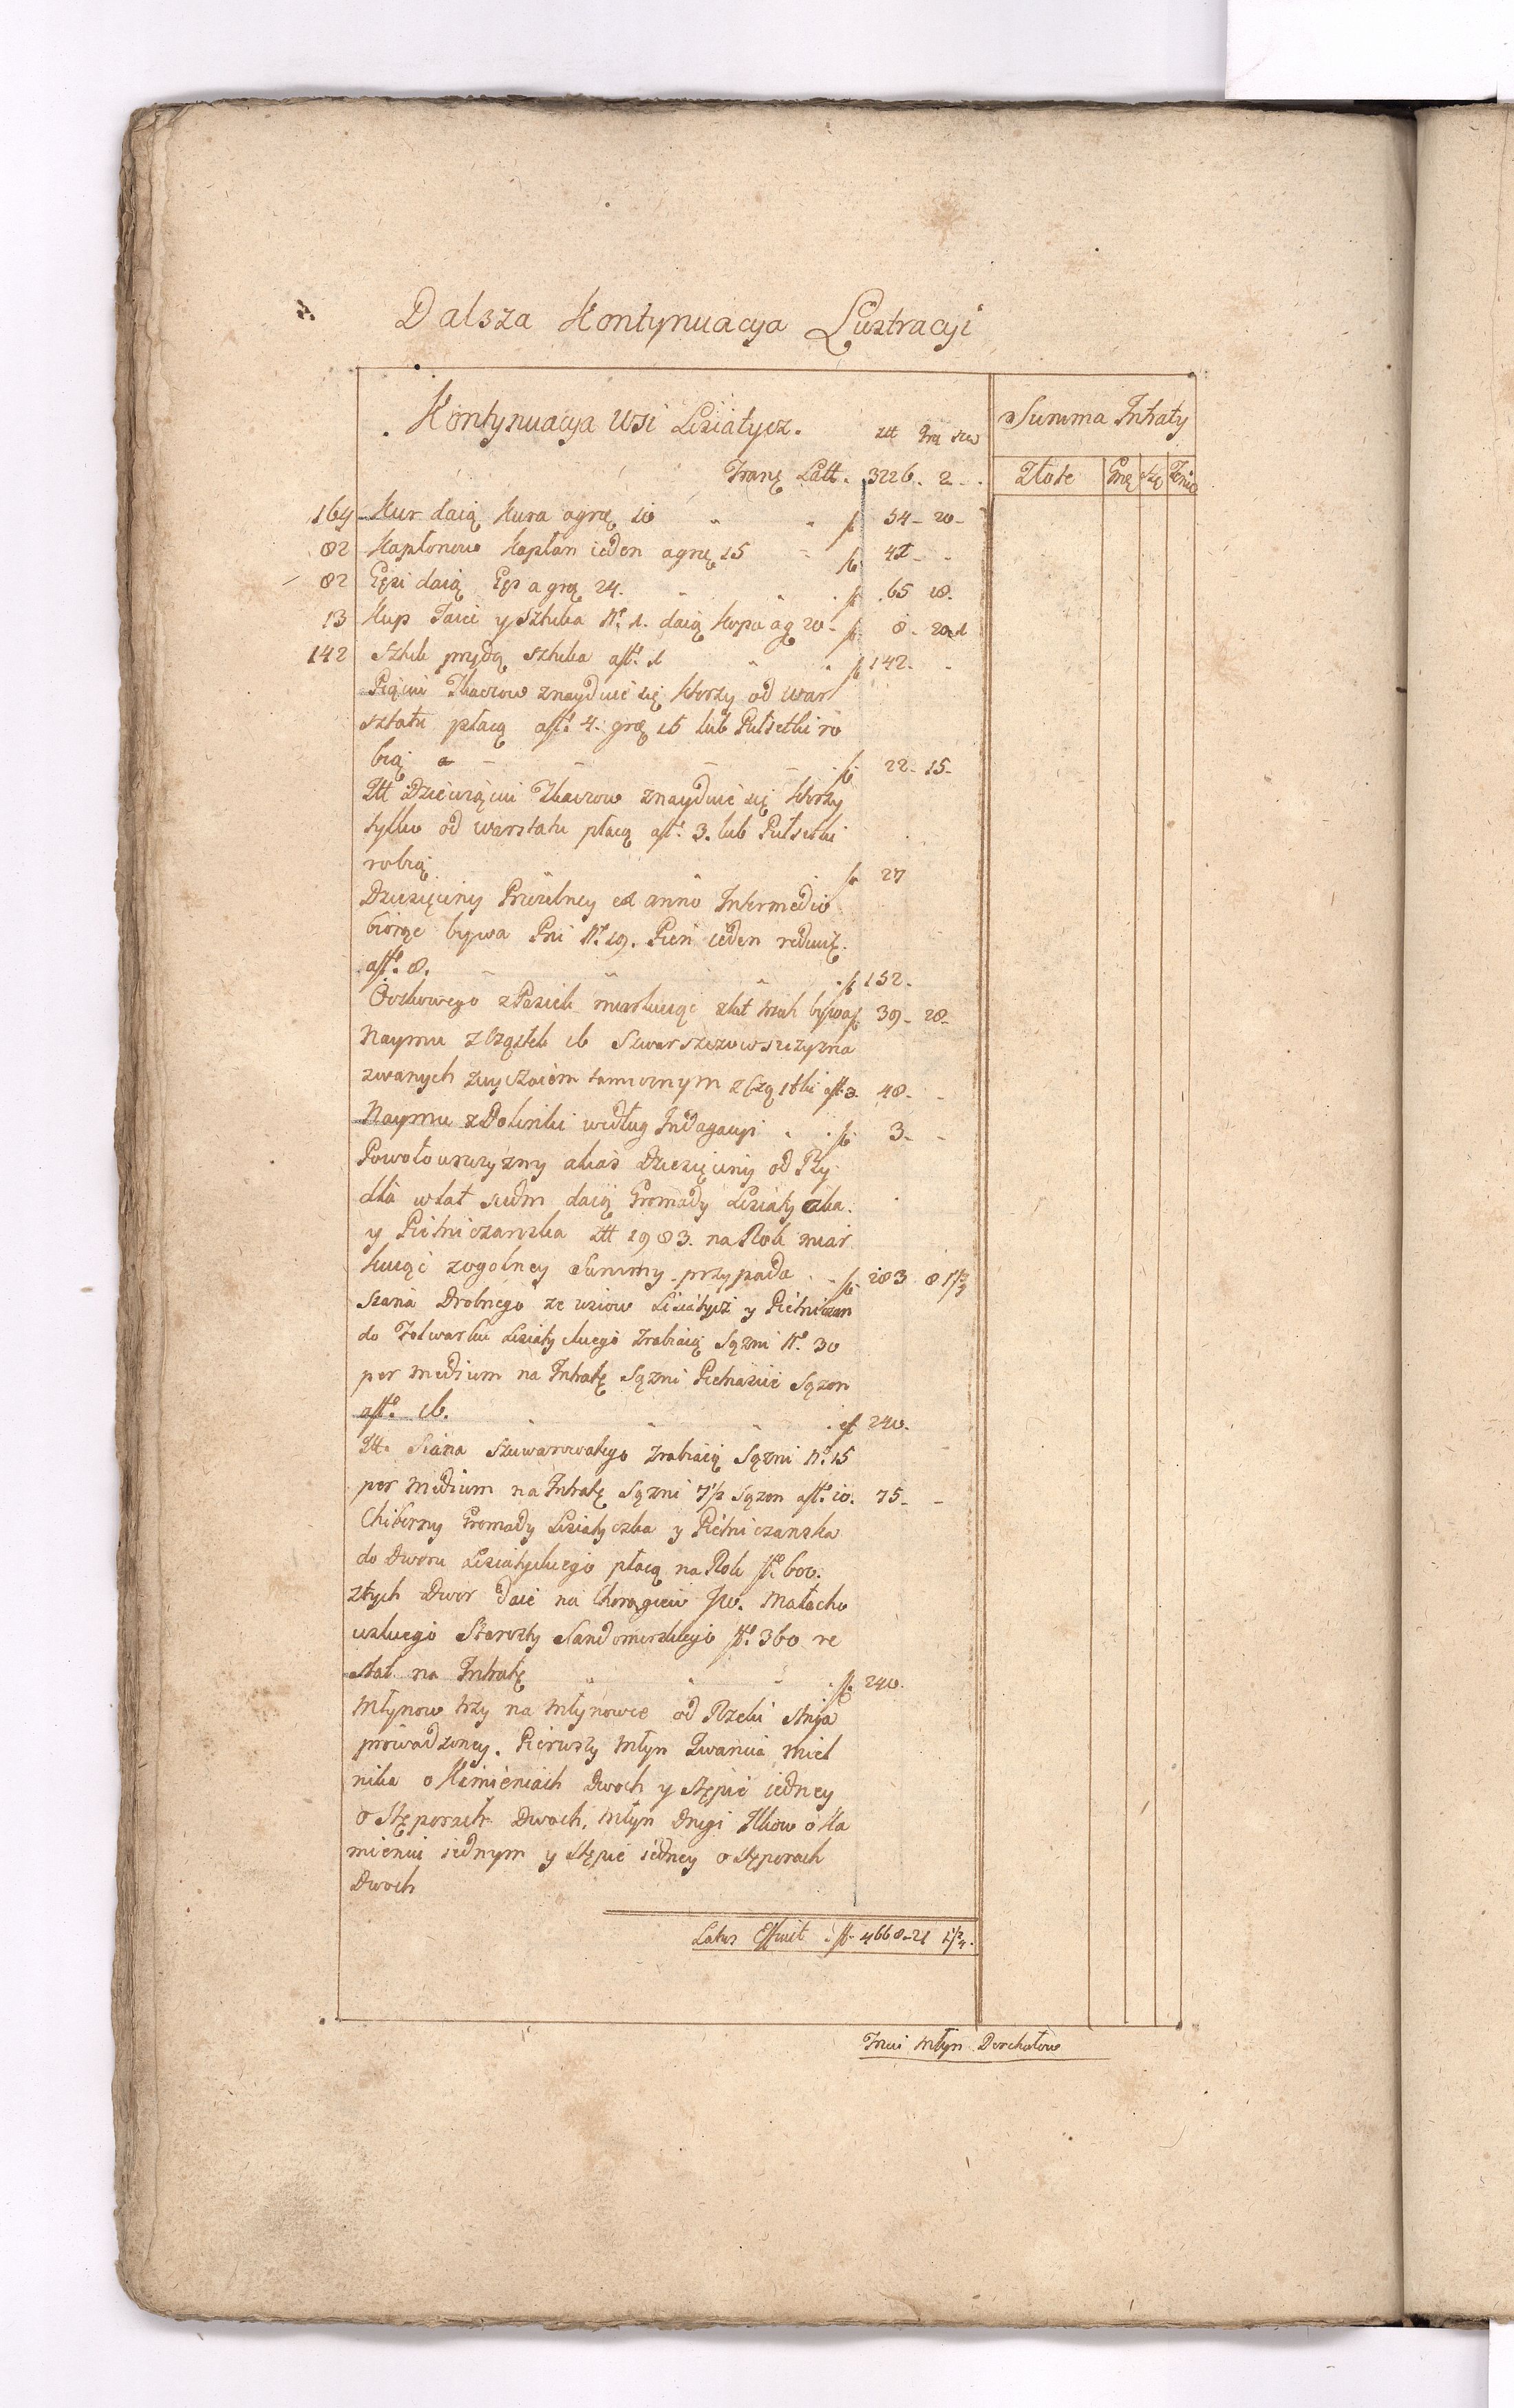 Dalsza Kontynuacya Lustracyi
Kontynuacya Wsi Lisiatycz. Złł Grą sze
Summa Intraty
Złote Grą szę
Tranę Latt. 3226. 2
164 Kur daią Kura agrą 10 f 54 - 20 -
82 Kapłonow Kapłan ieden agrą 15 f 41
82 Gęsi daią Gęś a grą 24. f 65 18.
13 Kup Jaiec y Sztuka Nr. 1. daią kopa ag 20 - f 8 - 20
142 Sztuk przędą sztuka aft. 1 f 142.
Pięciu Tkaczow znayduie się ktorzy od War
sztatu płacą aft. 4. grą 15 lub Pułsetki ro
bią f 22 - 15 -
Itt Dziewięciu Tkaczow znayduie się ktorzy
tylko od warstatu płacą aft. 3. lub Pułsetki
robią f 27
Dziesięciny Przelney ex anno Intermedio
biorąc bywa Pni No. 19. Pień ieden
afto. 8. f 152.
Oczkowego z Pasiek miarkuiąc z lat trzech bywa f 39 - 28 -
Naymu z Cząstek 16
zwanych zwyczaiem tamecznym z Cząstki aft 3. 48 -
Naymu z Dolinki według Indagacyi f 3 -
Powołowszczyzny alias Dziesięciny od By
dła w lat siedm daią Gromady Lisiatyczka.
y Pietniczanska Złł 1983. na Rok miar
kuiąc zogolney Summy przypada f 283 8 1½
Siana Drobnego ze wsiow Lisiatycz y Pietniczan
do Folwarku Lisiatyckiego zrabiaią Sązni No. 30
per medium na Intratę Sązni Pietnaście Sązen
afto. 16. f 240.
Itt. Siana Szuwarowatego zrabiaią Sązni No. 15
per medium na Intratę Sązni 7½ Sązen afto. 10. 75 -
Chiberny Gromady Lisiatyczka y Pietniczanska
do Dworu Lisiatyckiego płacą na Rok fto. 600.
z tych Dwor daie na Chorągiew JW. Małacho
wskiego Starosty Sandomirskiego fto. 360 re
stat na Intratę f 240.
Młynow trzy na Młynowce od Rzeki Stryia
prowadzoney. Pierwszy Młyn Iwania miel
nika o Kamieniach Dwoch y stępie iedney
o Stęporach Dwoch, Młyn Drugi Ilkow o Ka
mieniu iednym y Stępie iedney o stęporach
Dwoch
Latus Efficit f 4668 - 21
Trzeci Młyn